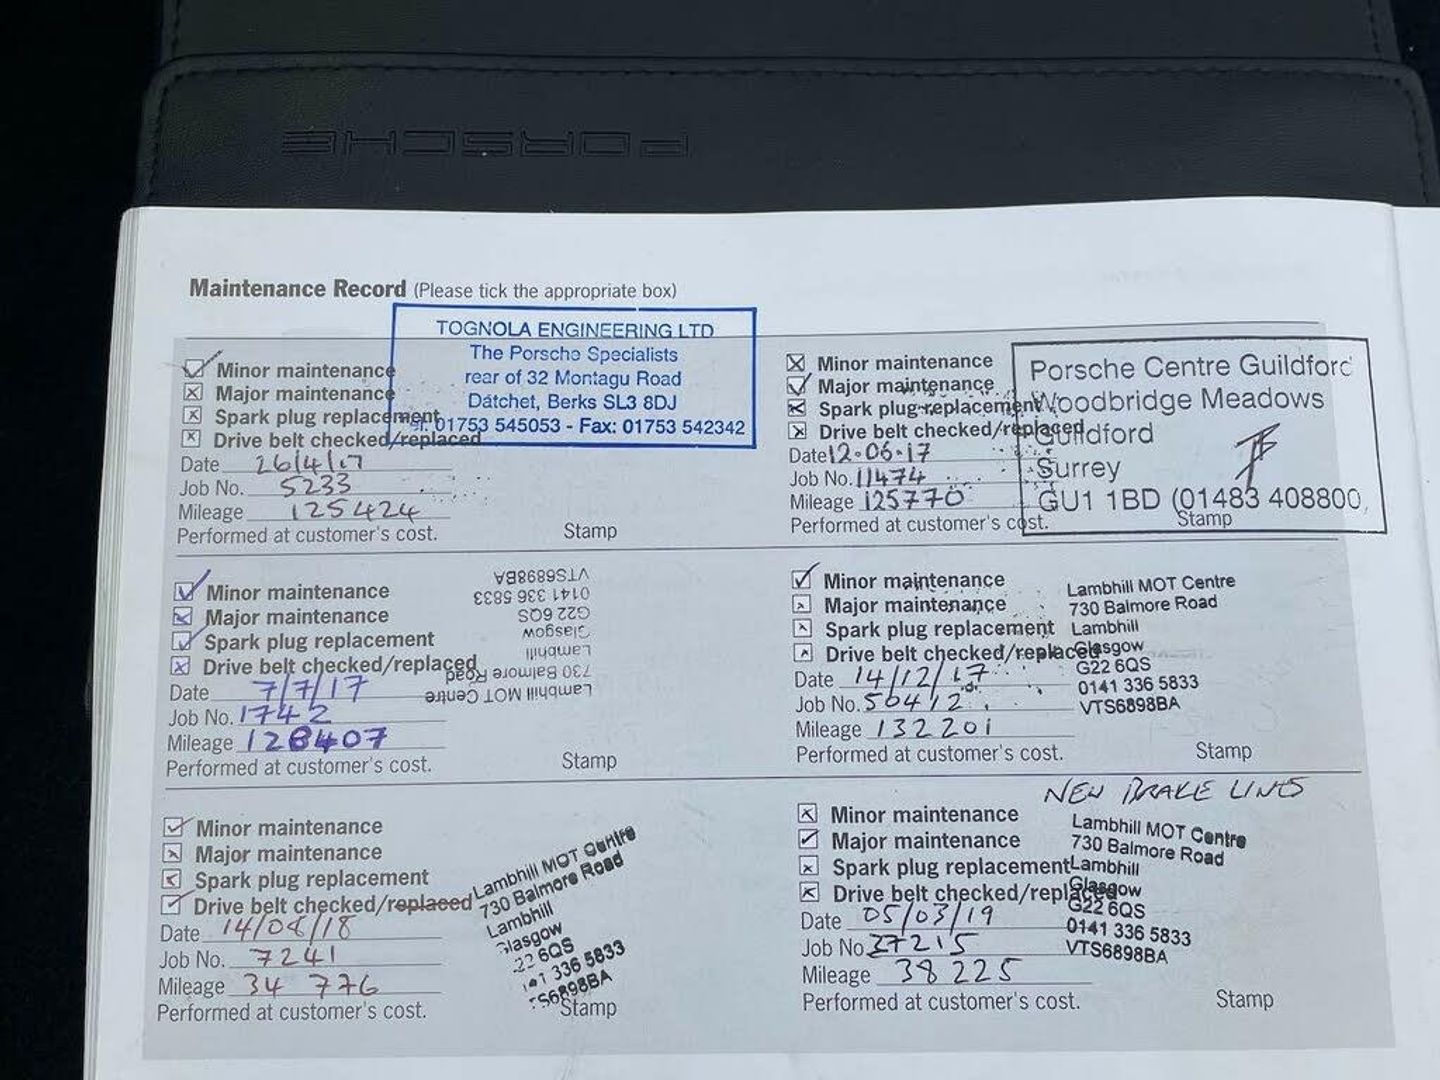 PORSCHE
Maintenance Record (Please tick the appropriate box)
TOGNOLA ENGINEERING LTD
The Porsche Specialists
rear of 32 Montagu Road
Datchet, Berks SL3 8DJ
01753 545053 - Fax: 01753 542342
Minor maintenance
Major maintenance
Spark plug replacement
Drive belt checked/replaced
Date 26/4/17
Job No. 5233
Mileage 125424
Performed at customer's cost.
Stamp
Minor maintenance
Major maintenance
Spark plug replacement
Drive belt checked/replaced
Date 12.06.17
Job No. 11474
Mileage 125770
Performed at customer's cost.
Porsche Centre Guildford
Woodbridge Meadows
Guildford
Surrey
GU1 1BD (01483 408800)
Stamp
Minor maintenance
Major maintenance
Spark plug replacement
Drive belt checked/replaced
Date 7/7/17
Job No. 1742
Mileage 128407
Performed at customer's cost.
Lambhill MOT Centre
730 Balmore Road
Lambhill
Glasgow
G22 6QS
0141 336 5833
VTS6898BA
Stamp
Minor maintenance
Major maintenance
Spark plug replacement
Drive belt checked/replaced
Date 14/12/17
Job No. 50412
Mileage 132201
Performed at customer's cost.
Lambhill MOT Centre
730 Balmore Road
Lambhill
Glasgow
G22 6QS
0141 336 5833
VTS6898BA
Stamp
Minor maintenance
Major maintenance
Spark plug replacement
Drive belt checked/replaced
Date 14/08/18
Job No. 7241
Mileage 34 776
Performed at customer's cost.
Lambhill MOT Centre
730 Balmore Road
Lambhill
Glasgow
22 6QS
141 336 5833
TS6898BA
Stamp
NEW BRAKE LINES
Minor maintenance
Major maintenance
Spark plug replacement
Drive belt checked/replaced
Date 05/03/19
Job No 27215
Mileage 38225
Performed at customer's cost.
Lambhill MOT Centre
730 Balmore Road
Lambhill
Glasgow
G22 6QS
0141 336 5833
VTS6898BA
Stamp